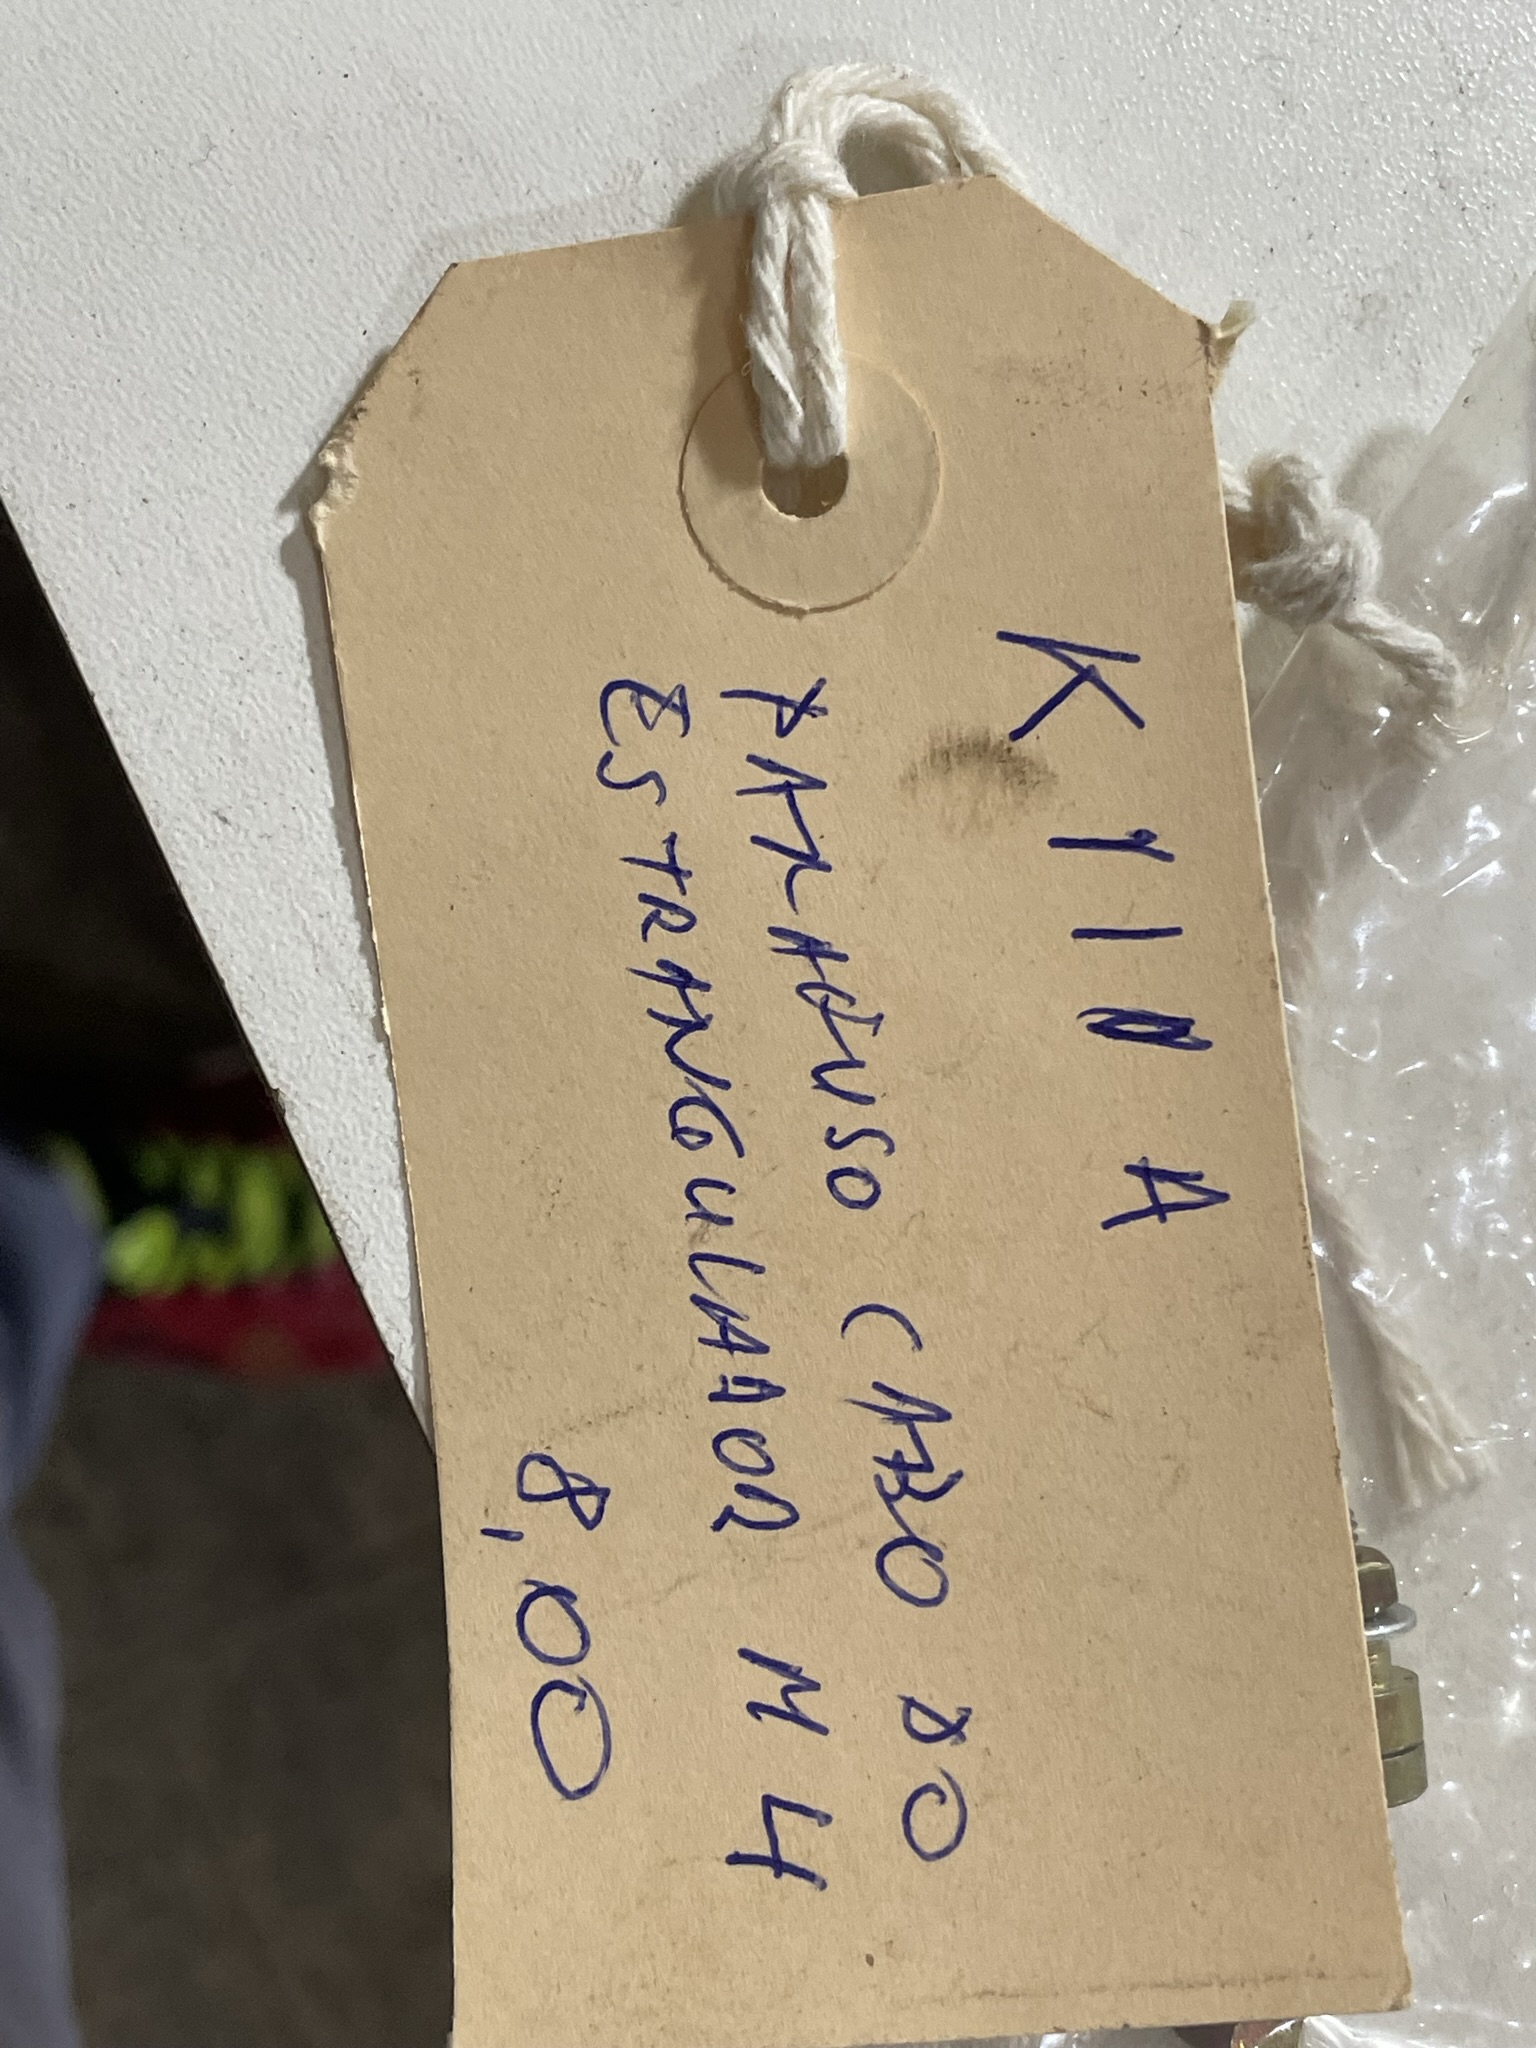 K 111 A
PARAFUSO CABO DO
ESTRANGULADOR M4
8,00